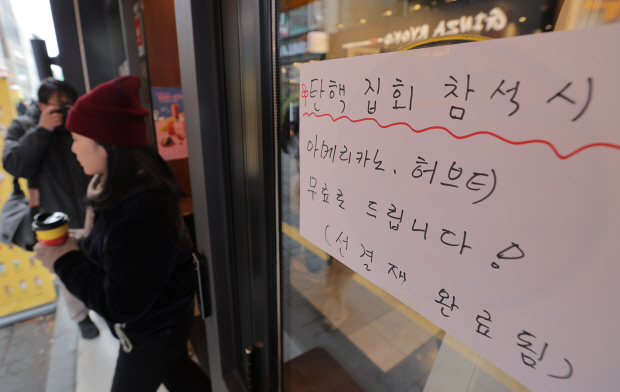 GINZA RYOKO
*탄핵 집회 참석 시
아메리카노, 허브티
무료로 드립니다!
(선결재 완료됨)